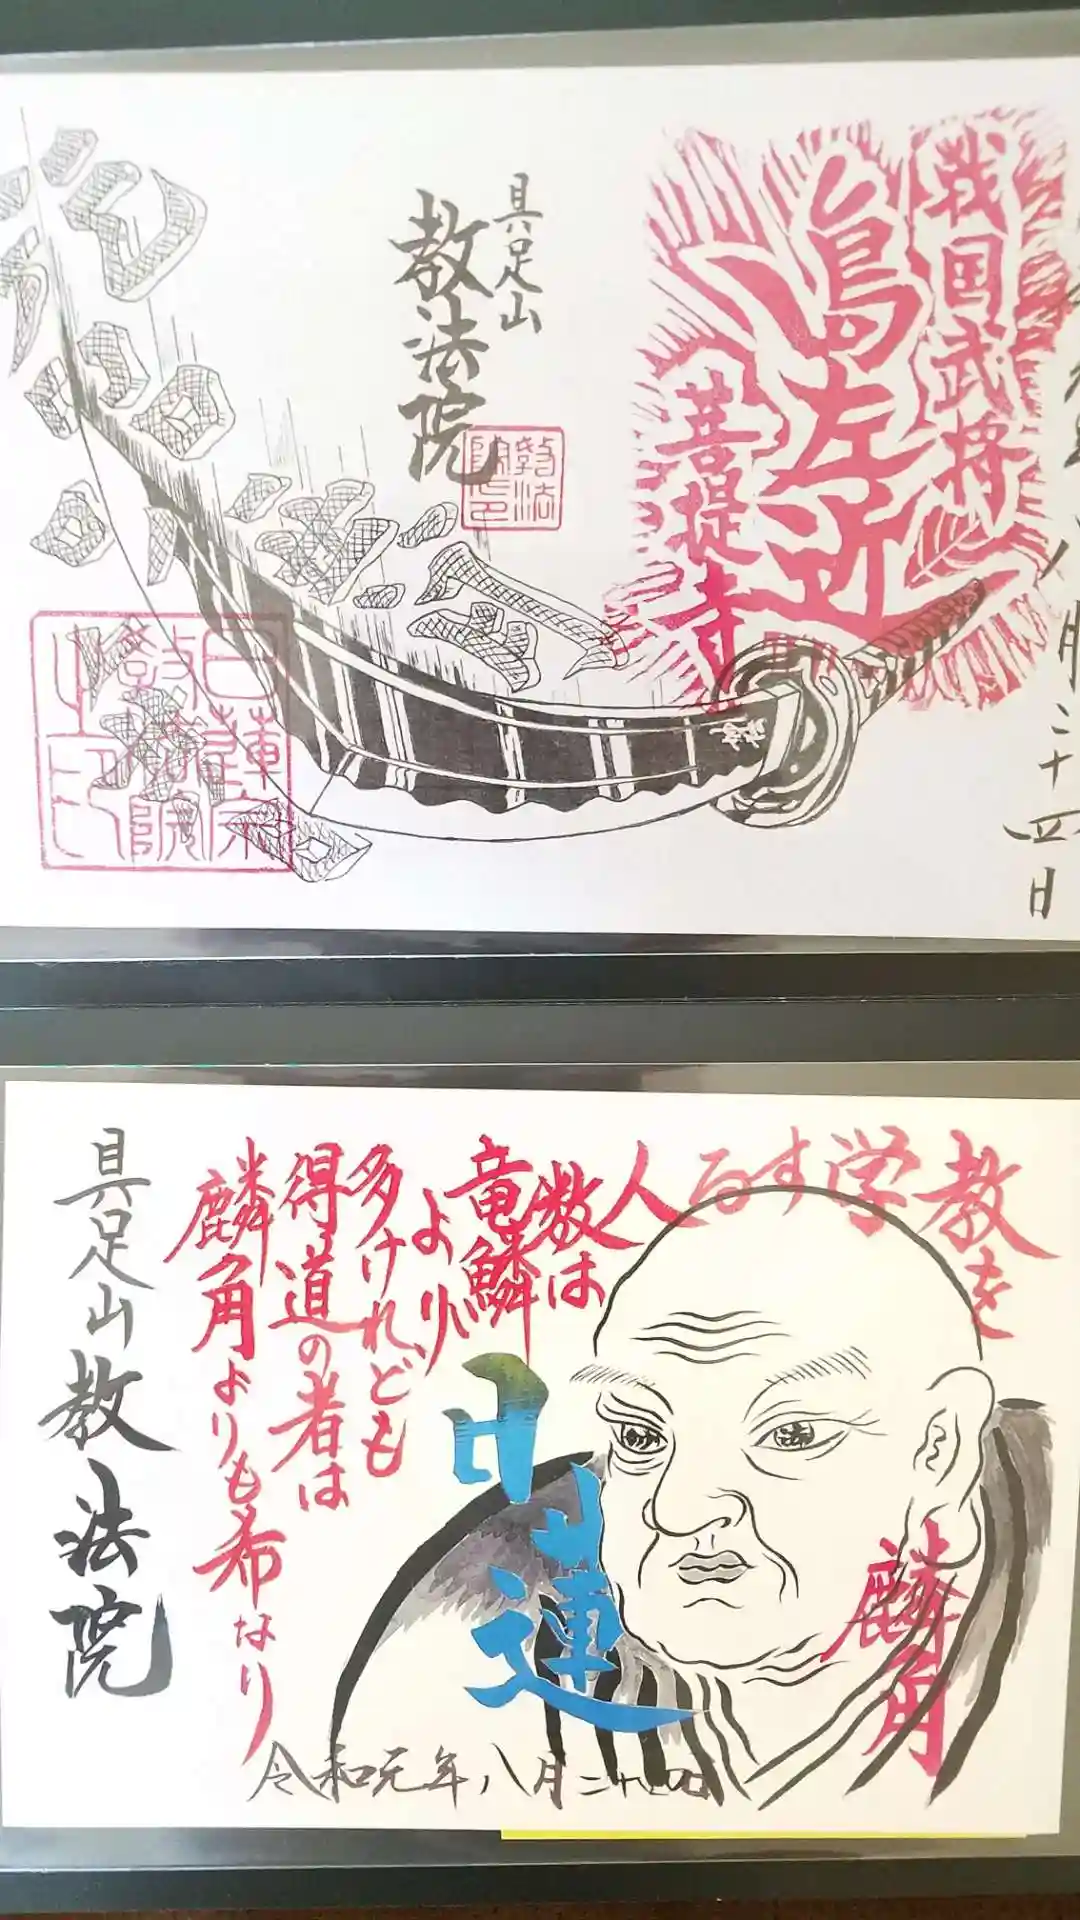 戦国武将
島左近
菩提寺
具足山
教法院
教法
院之印
八月二十四日
日蓮宗
教法院
之印
教を
学する
人
数は
竜鱗
より
多けれども
得道の者は
麟角よりも希なり
日蓮
麟角
具足山教法院
令和元年八月二十四日